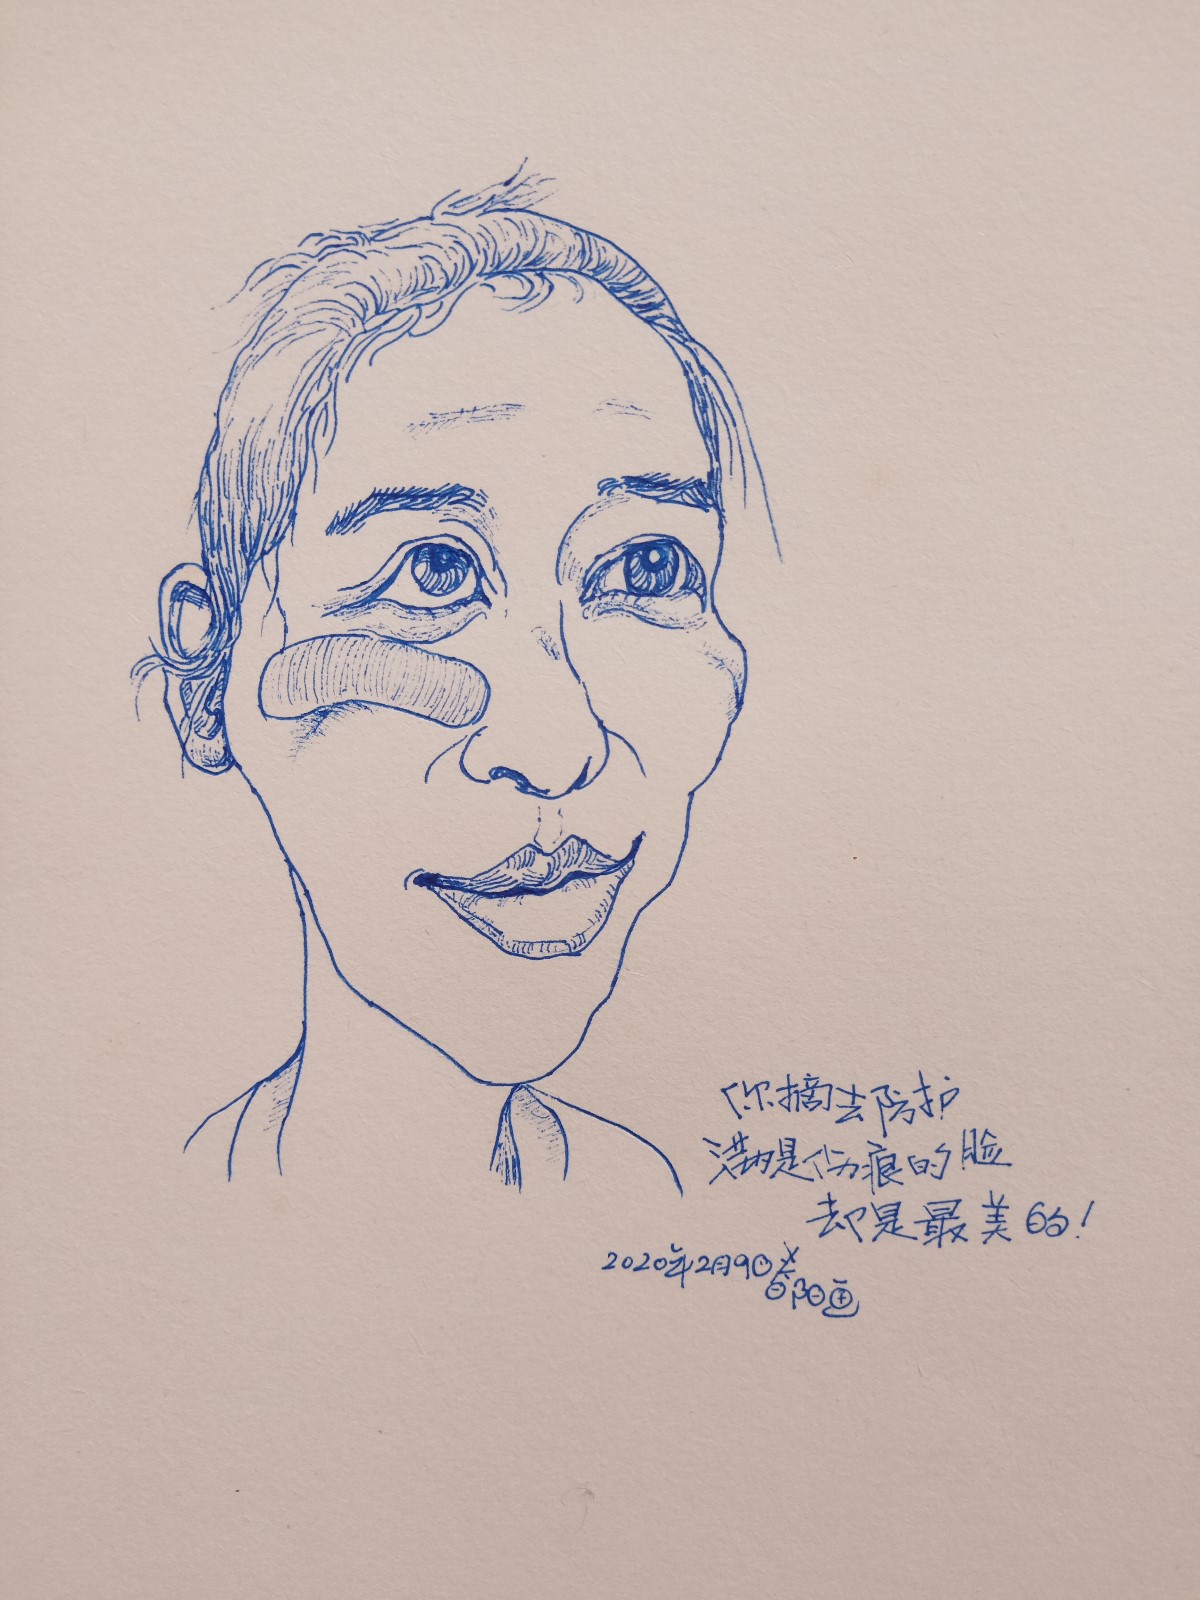 你摘去防护
满是伤痕的脸
却是最美的!
2020年2月9日
春阳画